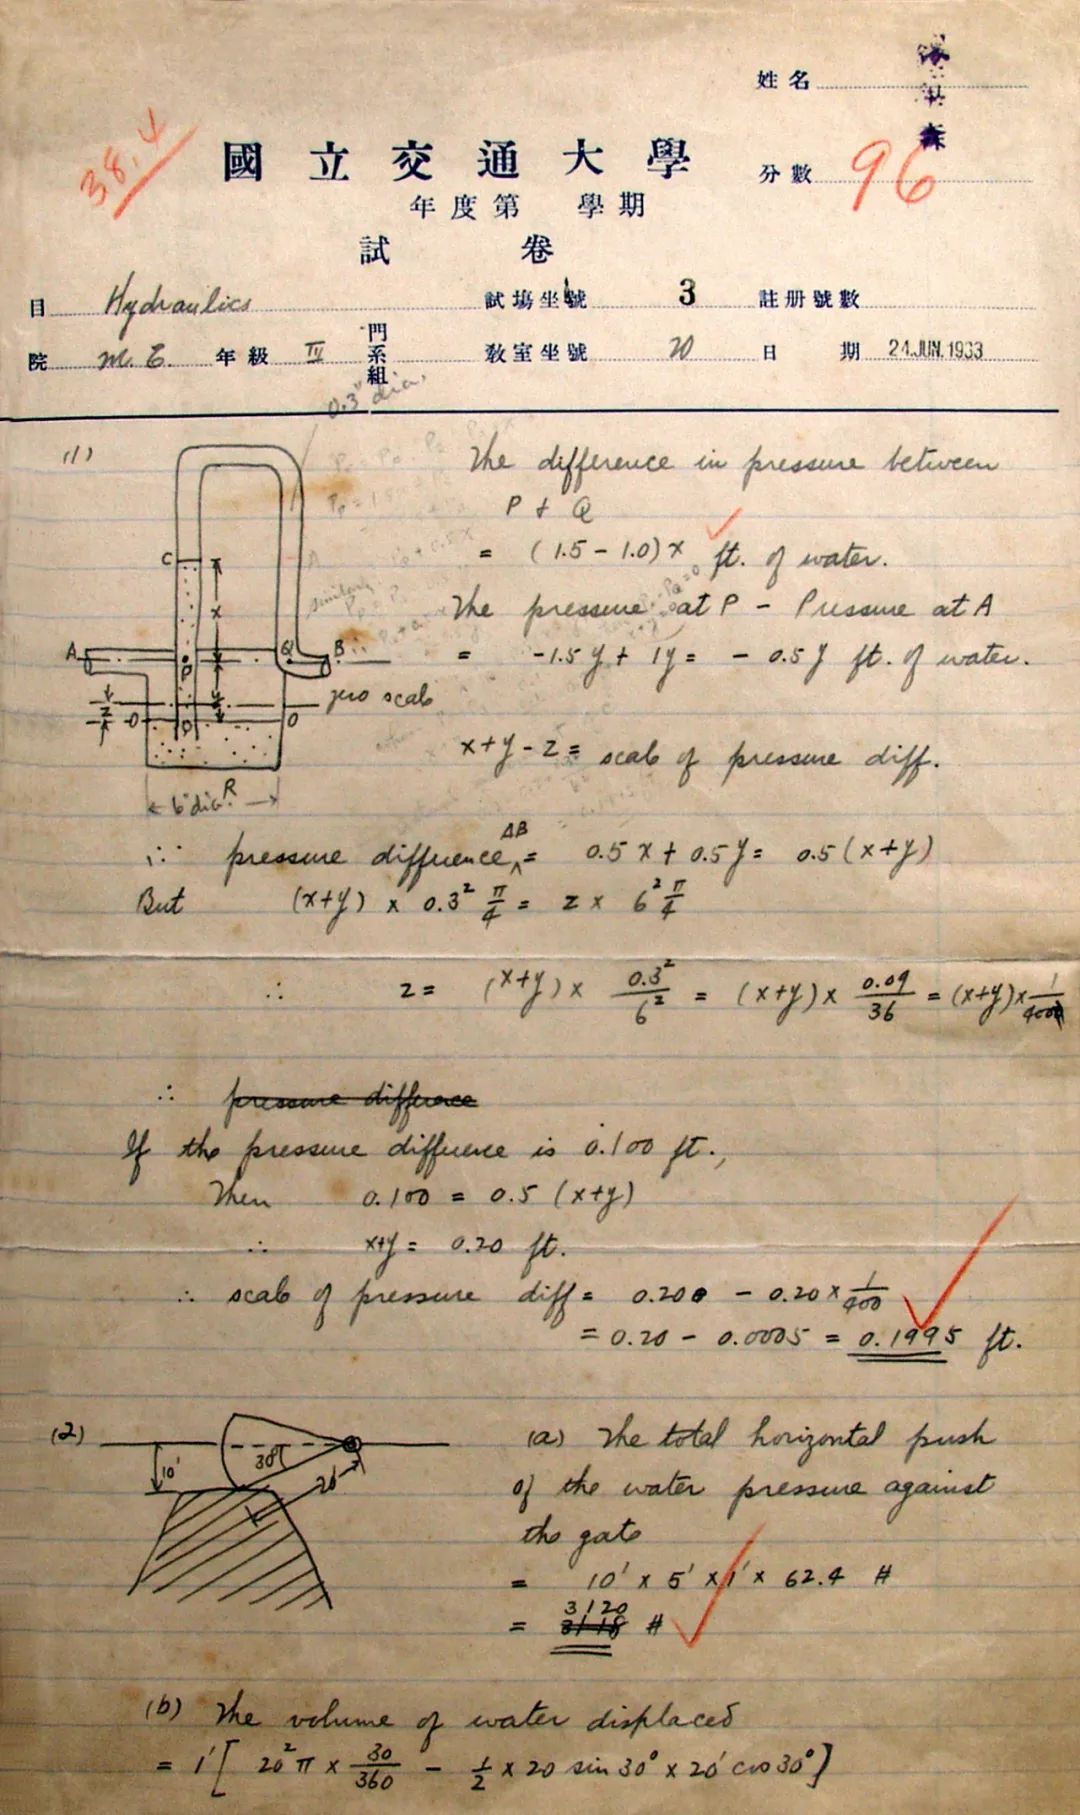 姓名
38.4
國立交通大學
分數 96
年度第 學期
試 卷
目 Hydraulics 試場坐號 3 註册號數
院 M.E. 年級 IV 門系組 教室坐號 20 日期 24.JUN.1933
0.3" dia.
(1)
The difference in pressure between
P + Q
= (1.5 - 1.0)x ft. of water.
The pressure at P - Pressure at A
= -1.5y + 1y = - 0.5y ft. of water.
C
x
A P Q B
y
z O O
zero scale
6" dia. R
x+y-z = scale of pressure diff.
∴ pressure difference AB = 0.5x + 0.5y = 0.5(x+y)
But (x+y) × 0.3² π/4 = z × 6² π/4
∴ z = (x+y) × 0.3²/6² = (x+y) × 0.09/36 = (x+y) × 1/400
∴ pressure difference
If the pressure difference is 0.100 ft.,
Then 0.100 = 0.5 (x+y)
∴ x+y = 0.20 ft.
∴ scale of pressure diff = 0.200 - 0.20 × 1/400
= 0.20 - 0.0005 = 0.1995 ft.
(2)
10' 30° 20'
(a) The total horizontal push
of the water pressure against
the gate
= 10' × 5' × 1' × 62.4 #
= 3120 #
(b) The volume of water displaced
= 1' [ 20² π × 30/360 - 1/2 × 20 sin 30° × 20' cos 30° ]